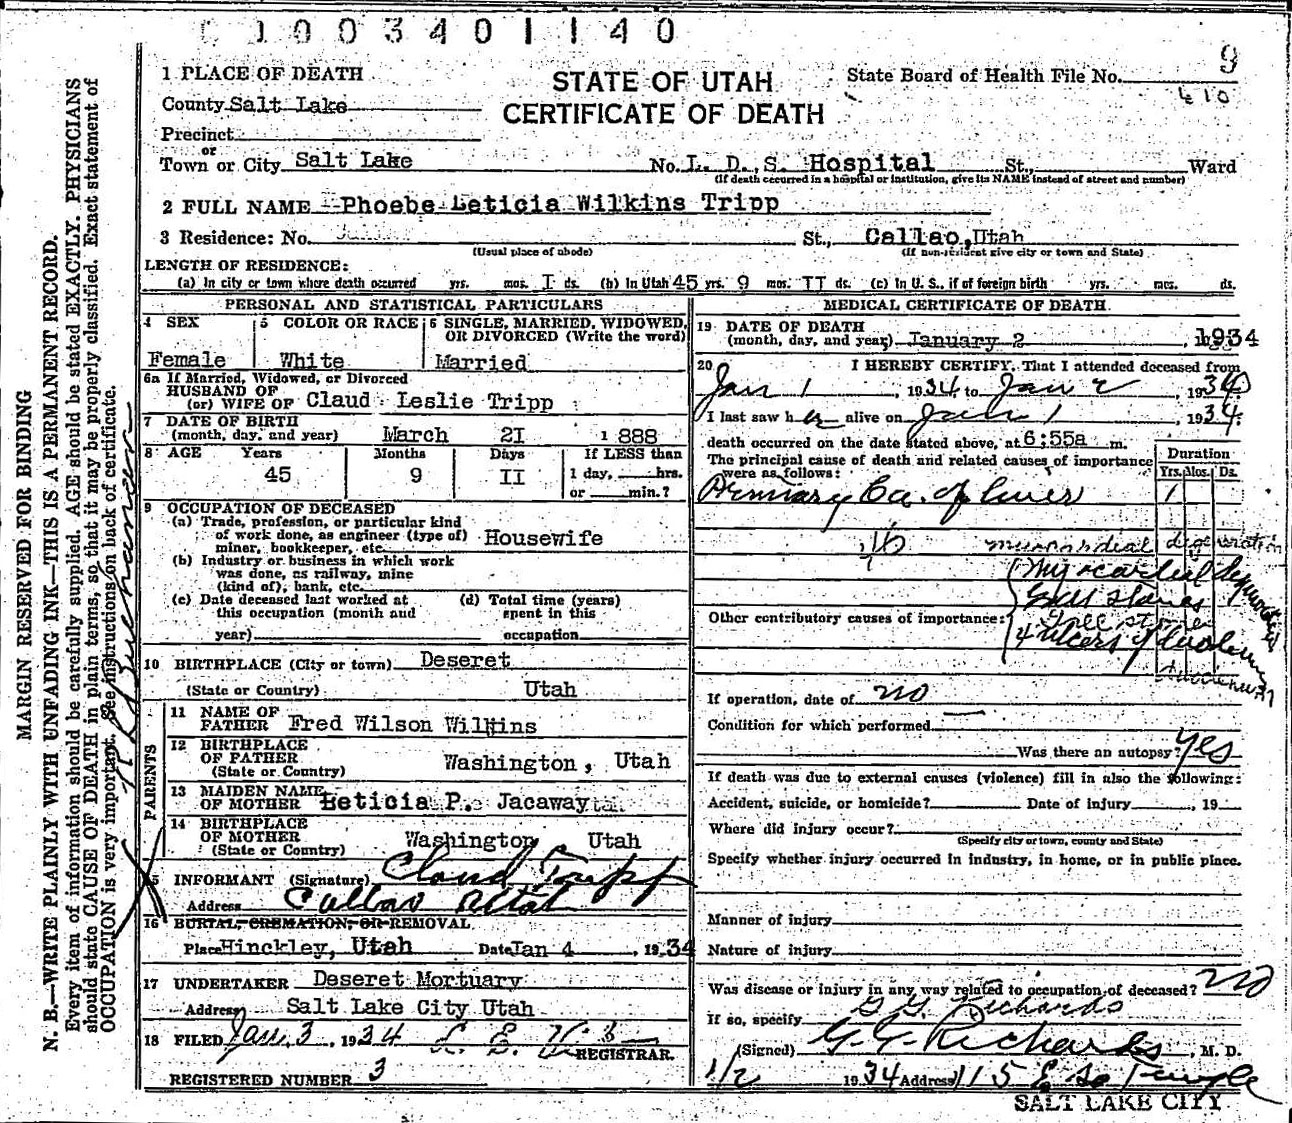 1003401140
STATE OF UTAH
CERTIFICATE OF DEATH
State Board of Health File No. 9
410
1 PLACE OF DEATH
County Salt Lake
Precinct
or
Town or City Salt Lake No. L. D. S. Hospital St., Ward
(If death occurred in a hospital or institution, give its NAME instead of street and number)
2 FULL NAME Phoebe Leticia Wilkins Tripp
3 Residence: No. St., Callao, Utah
(Usual place of abode) (If non-resident give city or town and State)
LENGTH OF RESIDENCE:
(a) In city or town where death occurred yrs. mos. I ds. (b) In Utah 45 yrs. 9 mos. II ds. (c) In U. S., if of foreign birth yrs. mos. ds.
PERSONAL AND STATISTICAL PARTICULARS
4 SEX 5 COLOR OR RACE 6 SINGLE, MARRIED, WIDOWED, OR DIVORCED (Write the word)
Female White Married
6a If Married, Widowed, or Divorced
HUSBAND OF
(or) WIFE OF Claud Leslie Tripp
7 DATE OF BIRTH
(month, day, and year) March 2I 1888
8 AGE Years Months Days If LESS than
45 9 II 1 day, hrs.
or min.?
9 OCCUPATION OF DECEASED
(a) Trade, profession, or particular kind
of work done, as engineer (type of)
miner, bookkeeper, etc. Housewife
(b) Industry or business in which work
was done, as railway, mine
(kind of), bank, etc.
(c) Date deceased last worked at (d) Total time (years)
this occupation (month and spent in this
year) occupation
10 BIRTHPLACE (City or town) Deseret
(State or Country) Utah
PARENTS
11 NAME OF
FATHER Fred Wilson Wilkins
12 BIRTHPLACE
OF FATHER Washington, Utah
(State or Country)
13 MAIDEN NAME
OF MOTHER Leticia P. Jacaway
14 BIRTHPLACE
OF MOTHER Washington Utah
(State or Country)
15 INFORMANT (Signature) Claud Tripp
Address Callao Utah
16 BURIAL, CREMATION, OR REMOVAL
Place Hinckley, Utah Date Jan 4, 1934
17 UNDERTAKER Deseret Mortuary
Address Salt Lake City Utah
18 FILED Jan. 3, 1934
REGISTRAR.
REGISTERED NUMBER 3
MEDICAL CERTIFICATE OF DEATH
19 DATE OF DEATH
(month, day, and year) January 2, 1934
20 I HEREBY CERTIFY, That I attended deceased from
Jan 1, 1934, to Jan 2, 1934
I last saw her alive on Jan 1, 1934.
death occurred on the date stated above, at 6:55a m.
The principal cause of death and related causes of importance
were as follows:
Duration
Yrs. Mos. Ds.
Primary Ca. of liver 1
myocardial degeneration
Myocardial degeneration
Gall stones
Other contributory causes of importance: Gall stones
4 ulcers of duodenum
duodenum
If operation, date of no
Condition for which performed
Was there an autopsy? Yes
If death was due to external causes (violence) fill in also the following:
Accident, suicide, or homicide? Date of injury, 19
Where did injury occur?
(Specify city or town, county and State)
Specify whether injury occurred in industry, in home, or in public place.
Manner of injury
Nature of injury
Was disease or injury in any way related to occupation of deceased? no
If so, specify G. G. Richards
(Signed) G. G. Richards, M. D.
1/2 1934 Address 115 E So Temple
SALT LAKE CITY
MARGIN RESERVED FOR BINDING
N. B.—WRITE PLAINLY WITH UNFADING INK—THIS IS A PERMANENT RECORD.
Every item of information should be carefully supplied. AGE should be stated EXACTLY. PHYSICIANS
should state CAUSE OF DEATH in plain terms, so that it may be properly classified. Exact statement of
OCCUPATION is very important. See instructions on back of certificate.